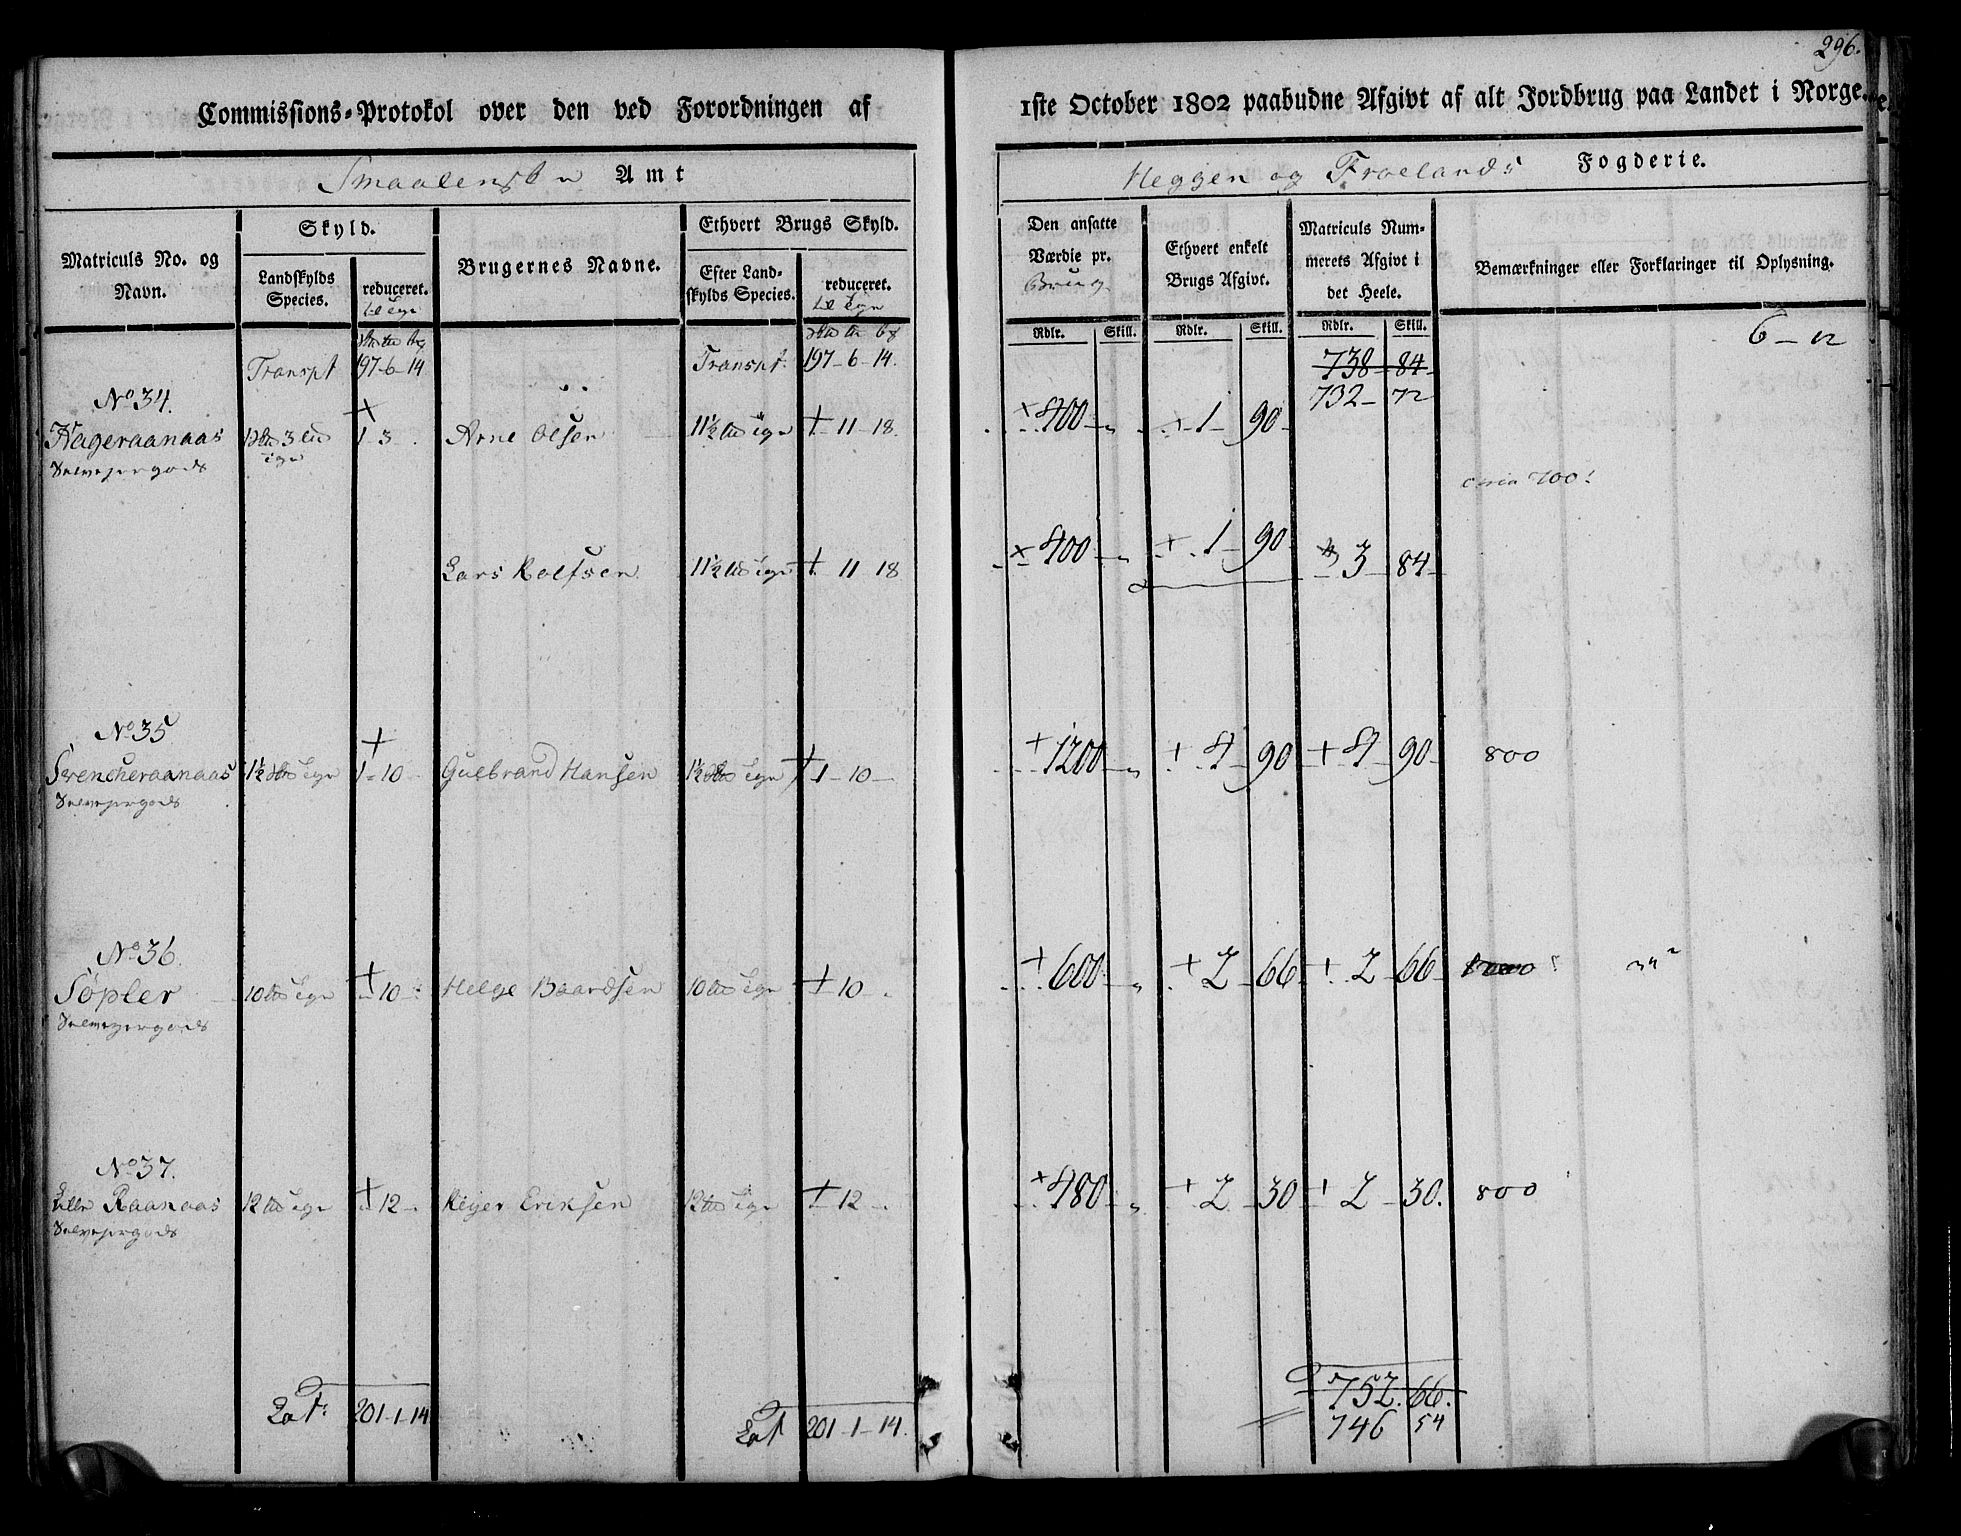 296.
Commissions-Protokol over den ved Forordningen af 1ste October 1802 paabudne Afgivt af alt Jordbrug paa Landet i Norge.
Smaalenske Amt
Heggen og Frølands Fogderie.
Matriculs No. og Navn.
Skyld.
Landskylds Species.
reduceret.
Brugernes Navne.
Ethvert Brugs Skyld.
Efter Landskylds Species.
reduceret.
Den ansatte Værdie pr. Brug
Ethvert enkelt Brugs Afgivt.
Matriculs Nummerets Afgivt i det Heele.
Bemærkninger eller Forklaringer til Oplysning.
Rdlr. Skill. Rdlr. Skill. Rdlr. Skill.
6 - 12
Transpt 197-6-14 Transpt 197-6-14. 738-84
732-72
No 34.
Hageraanaas 3 1-3 Arne Olsen 11½ 11-18. 400 1-90
Selvejergods
circa 700
Lars Rolfsen 11½ 11-18 400 1-90 3 84
No 35
Svencheraanaas 1½ 1-10 Gulbrand Hansen 1½ 1-10 1200 4 90 4 90 800
Selvejergods
No 36.
Søpler 10 10 Helge Baardsen 10 10 600 2 66 2 66
Selvejergods
No 37.
Lille Raanaas 12 12 Reyer Eriksen 12 12 480 2 30 2 30. 800
Selvejergods
Lat. 201-1-14 Lat 201-1-14. 752.66.
746 54